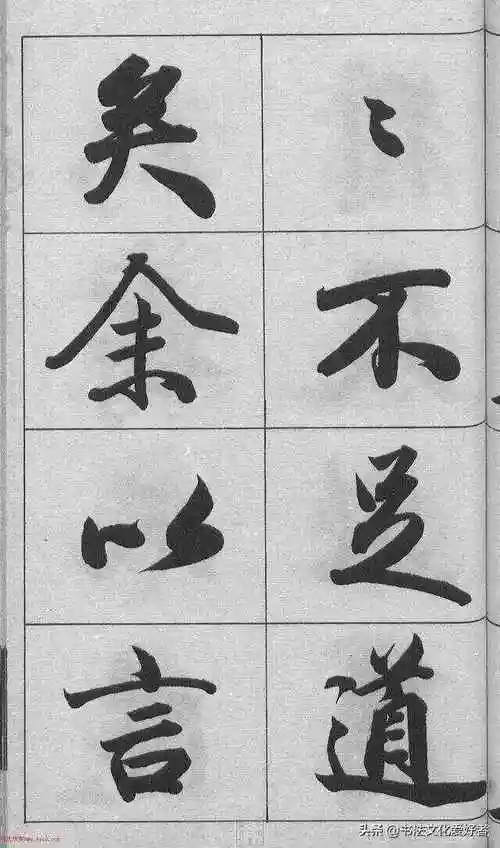 々不足道
矣余以言
头条@书法文化爱好者